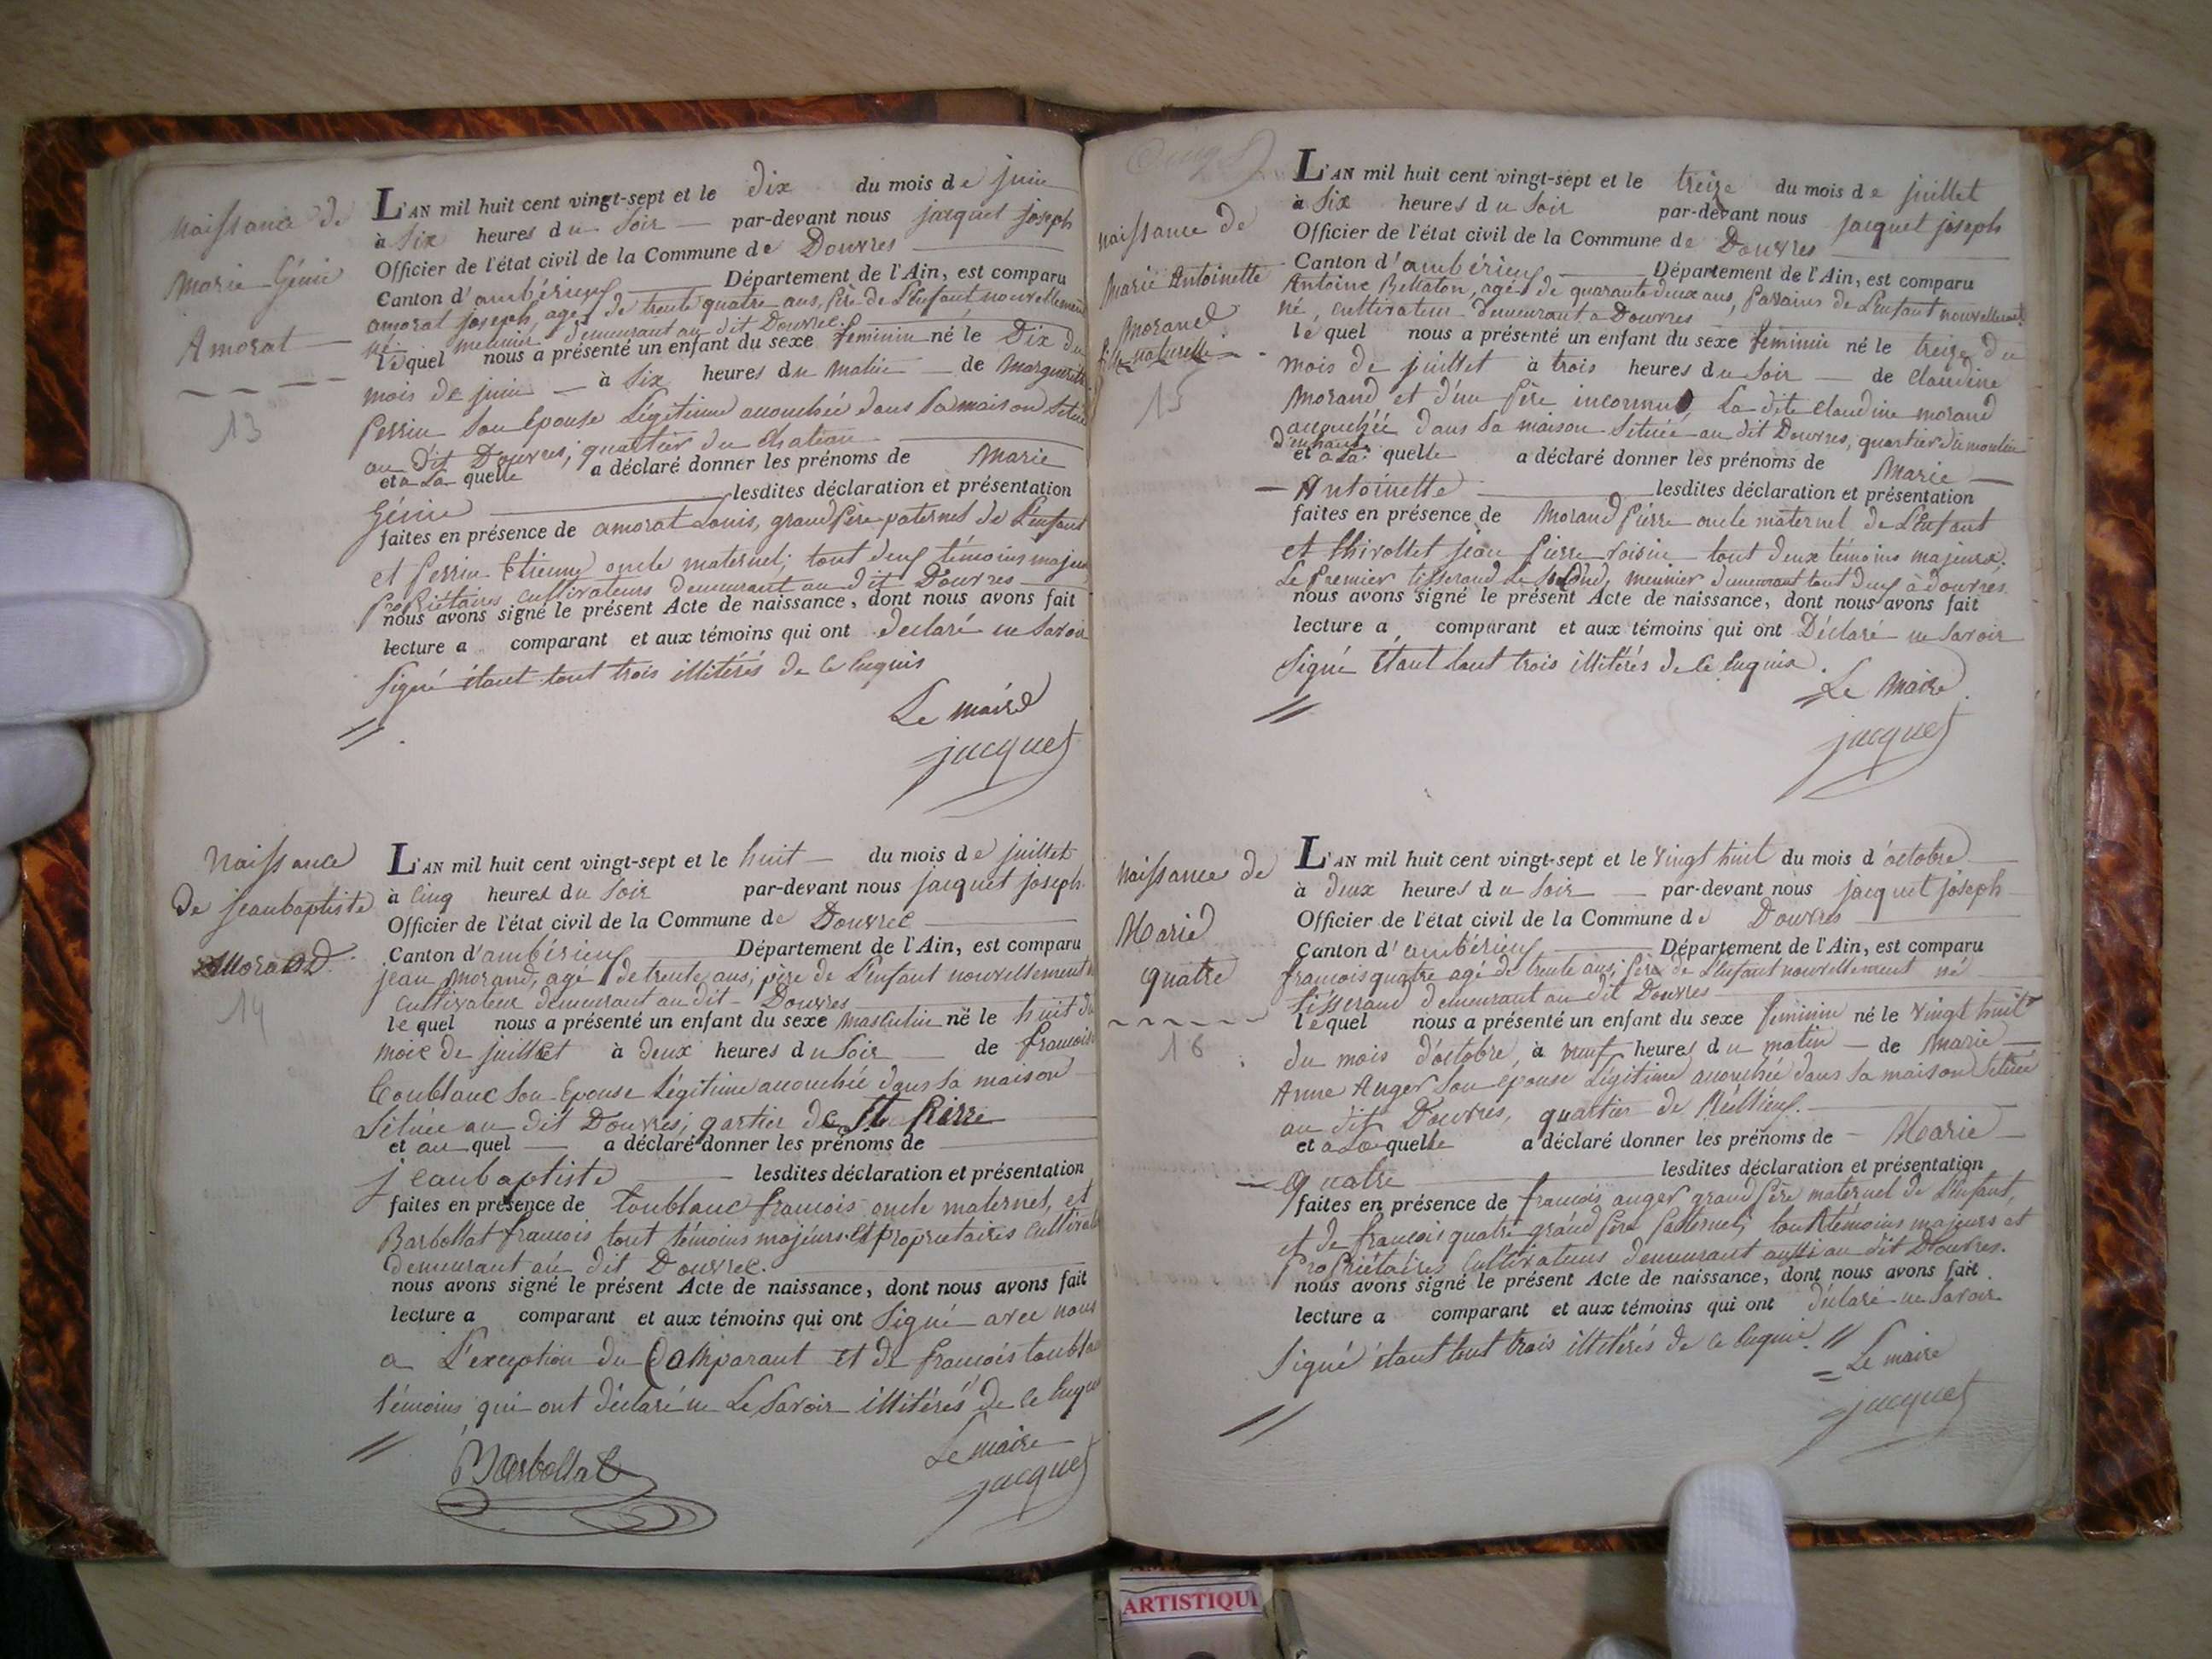 naissance de
Marie Génie
Amorat
13
L'AN mil huit cent vingt-sept et le dix du mois de juin
à Six heures du Soir par-devant nous jacquet joseph
Officier de l'état civil de la Commune de Douvres
Canton d'ambérieux Département de l'Ain, est comparu
amorat joseph agé de trente quatre ans, père de L'enfant nouvellement
né meunier demeurant au dit Douvres
lequel nous a présenté un enfant du sexe feminin né le Dix du
mois de juin à Six heures du Matin de Marguerite
Perrin Son Epouse Légitime accouchée dans Sa maison Située
au dit Douvres, quartier du chateau
et a La quelle a déclaré donner les prénoms de Marie
Génie lesdites déclaration et présentation
faites en présence de amorat Louis, grand père paternel de L'enfant
et Perrin Etienne oncle maternel, tout deux témoins majeurs
Propriétaires cultivateurs demeurant au dit Douvres
nous avons signé le présent Acte de naissance, dont nous avons fait
lecture a comparant et aux témoins qui ont déclaré ne Savoir
Signé étant tout trois illitérés de ce Enquis
Le maire
jacquet
Naissance
De jeanbaptiste
Morand
14
L'AN mil huit cent vingt-sept et le huit du mois de juillet
à Cinq heures du Soir par-devant nous jacquet joseph
Officier de l'état civil de la Commune de Douvres
Canton d'ambérieux Département de l'Ain, est comparu
jean Morand, agé de trente ans, père de L'enfant nouvellement né
cultivateur demeurant au dit Douvres
lequel nous a présenté un enfant du sexe masculin né le huit du
mois de juillet à deux heures du Soir de francoise
Toublanc Son Epouse Légitime accouchée dans Sa maison
Située au dit Douvres, qartier de St Pierre
et au quel a déclaré donner les prénoms de
jeanbaptiste lesdites déclaration et présentation
faites en présence de Toublanc francois oncle maternel, et
Barbollat francois tout témoins majeurs et propriétaires cultivat
demeurant au dit Douvres.
nous avons signé le présent Acte de naissance, dont nous avons fait
lecture a comparant et aux témoins qui ont Signé avec nous
a L'exception du Comparant et de francois toublan
témoins qui ont déclaré ne Le Savoir illitérés de ce Enquis
Barbollat
Le maire
jacquet
naissance de
Marie Antoinette
Morand
fille naturelle
15
L'AN mil huit cent vingt-sept et le treize du mois de juillet
à Six heures du Soir par-devant nous jacquet joseph
Officier de l'état civil de la Commune de Douvres
Canton d'ambérieux Département de l'Ain, est comparu
Antoine Bellaton, agé de quarante deux ans, Parains de L'enfant nouvellement
né, cultivateur demeurant à Douvres
lequel nous a présenté un enfant du sexe feminin né le treize du
mois de juillet à trois heures du Soir de Claudine
Morand et d'un père inconnu, La dite Claudine morand
accouchée dans Sa maison Située au dit Douvres, quartier du moulin
d'enhaut
et a La quelle a déclaré donner les prénoms de Marie
Antoinette lesdites déclaration et présentation
faites en présence de Morand Pierre oncle maternel de L'enfant
et Thivollet jean Pierre voisin tout deux témoins majeurs,
Le Premier tisserand Le Second, meunier demeurant tout deux à Douvres.
nous avons signé le présent Acte de naissance, dont nous avons fait
lecture a comparant et aux témoins qui ont Déclaré ne Savoir
Signé étant tout trois illitérés de ce Enquis.
Le Maire
jacquet
naissance de
Marie
quatre
16
L'AN mil huit cent vingt-sept et le vingt huit du mois d'octobre
à deux heures du Soir par-devant nous jacquet joseph
Officier de l'état civil de la Commune de Douvres
Canton d'ambérieux Département de l'Ain, est comparu
francois quatre agé de trente ans, Père de L'enfant nouvellement né
tisserand demeurant au dit Douvres
lequel nous a présenté un enfant du sexe feminin né le vingt huit
du mois d'octobre, à neuf heures du matin de Marie
Anne Auger Son épouse Légitime accouchée dans Sa maison Située
au dit Douvres, quartier de
et a La quelle a déclaré donner les prénoms de Marie
quatre lesdites déclaration et présentation
faites en présence de francois auger grand père maternel de L'enfant,
et de francois quatre grand père paternel, tout témoins majeurs et
Propriétaires cultivateurs demeurant aussi au dit Douvres.
nous avons signé le présent Acte de naissance, dont nous avons fait
lecture a comparant et aux témoins qui ont déclaré ne Savoir
Signé étant tout trois illitérés de ce Enquis.
Le maire
jacquet
ARTISTIQU